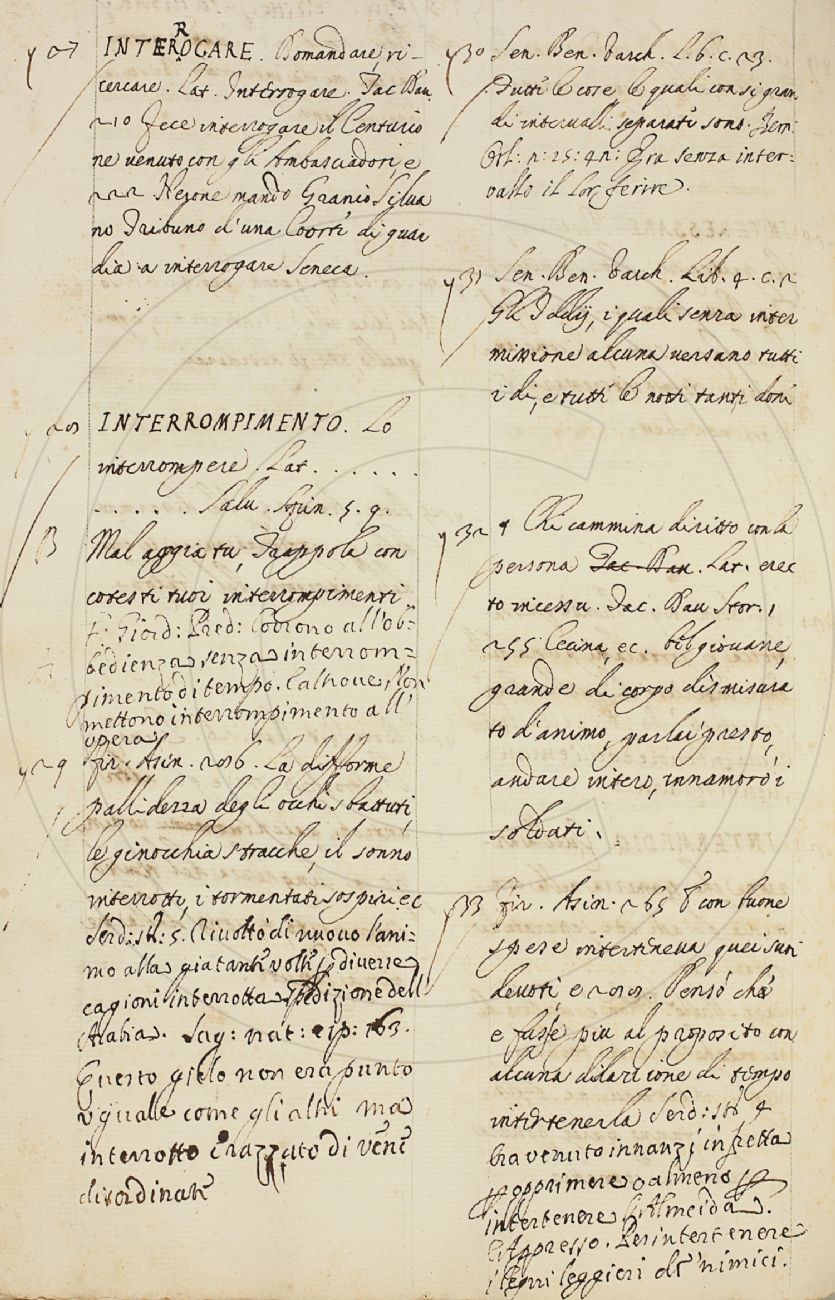 INTERROGARE. Domandare, ri-
cercare. Lat. Interrogare. Tac. Dav.
210 Fece interrogare il Centurio
ne venuto con gli Ambasciadori, e
222 Nerone mandò Granio Silva
no Tribuno d'una Coorte di guar
dia a interrogare Seneca.
INTERROMPIMENTO. Lo
interrompere. Lat. . . . . . .
. . . . . Salv. Spin. 5. 9.
B Mal aggia tu, Trappola con
cotesti tuoi interrompimenti
F. Giord: Pred: Corrono all'ob=
bedienza senza interrom=
pimento di tempo. Ealtrove, Non
mettono interrompimento all'
opera
Fir. Asin. La difforme
pallidezza degli occhi sbattuti,
le ginocchia stracche, il sonno
interrotto, i tormentati sospiri ec
Serd: st: 5. Rivoltò di nuovo l'ani=
mo alla già tante volte p diverse
cagioni interrotta Spedizione dell'
Arabia. Sag: nat: esp: 163.
Questo gielo non era punto
uguale come gli altri ma
interrotto e razzato di vene
disordinate
y30 Sen. Ben. Varch. L. 6. c. 23.
Tutte le cose le quali con sì gran
di intervalli separate sono. Bern:
Orl: n: 25: 4n: Era senza inter=
vallo il lor ferire.
y31 Sen. Ben. Varch. Lib. 4. c. 2
Gli Iddij, i quali senza inter
missione alcuna versano tutti
i dì, e tutte le notti tanti doni
y32 Che cammina diritto con la
persona Tac. Dav. Lat. erec
to incessu. Tac. Dav Stor. 1
255 Cecina, ec. bel giovane,
grande di corpo dismisura
to d'animo, parlar presto,
andare intero, innamorò i
soldati.
y33 Fir. Asin. 265 E con buone
spese interteneva quei suoi
devoti, e Pensò che
e fusse più al proposito con
alcuna dilazione di tempo
intertenerla Serd: st: 4
Era venuto innanzi in fretta
p opprimere o almeno p
intertenere l'Almeida.
E Appresso. Per intertenere
i legni leggieri de' nimici.